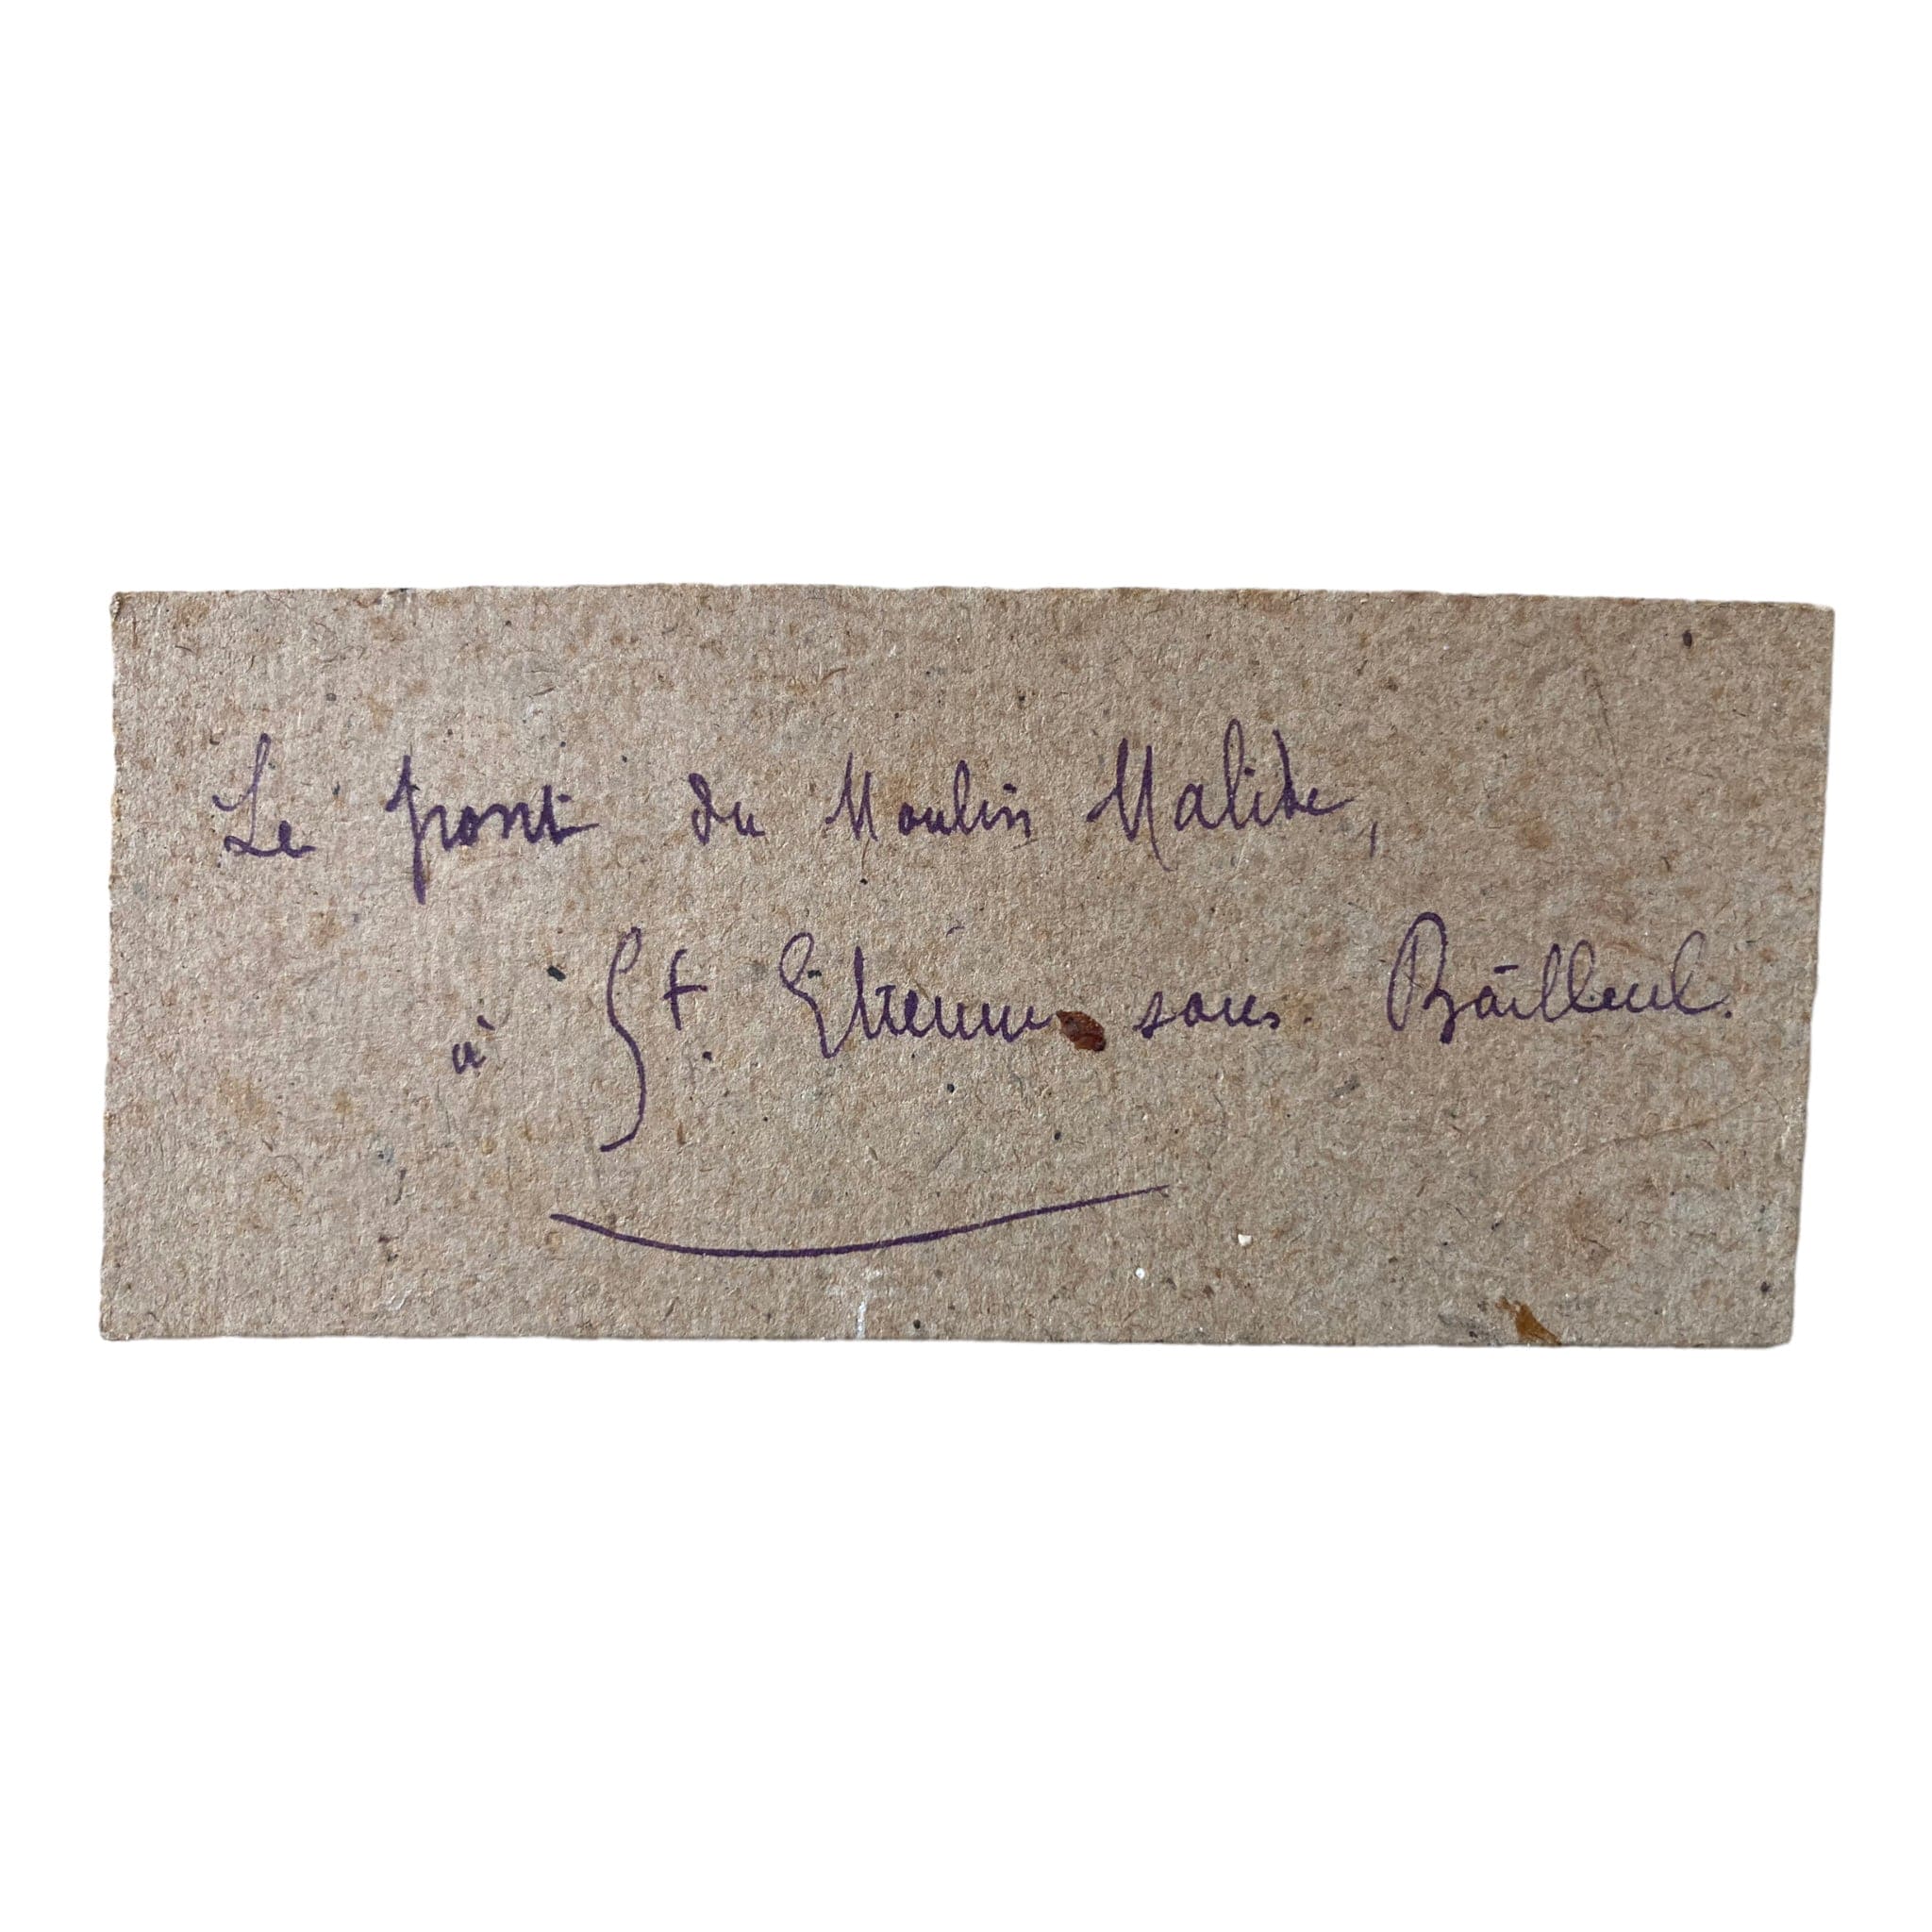 Le pont du Moulin Malide,
à St. Etienne sous Bailleul.